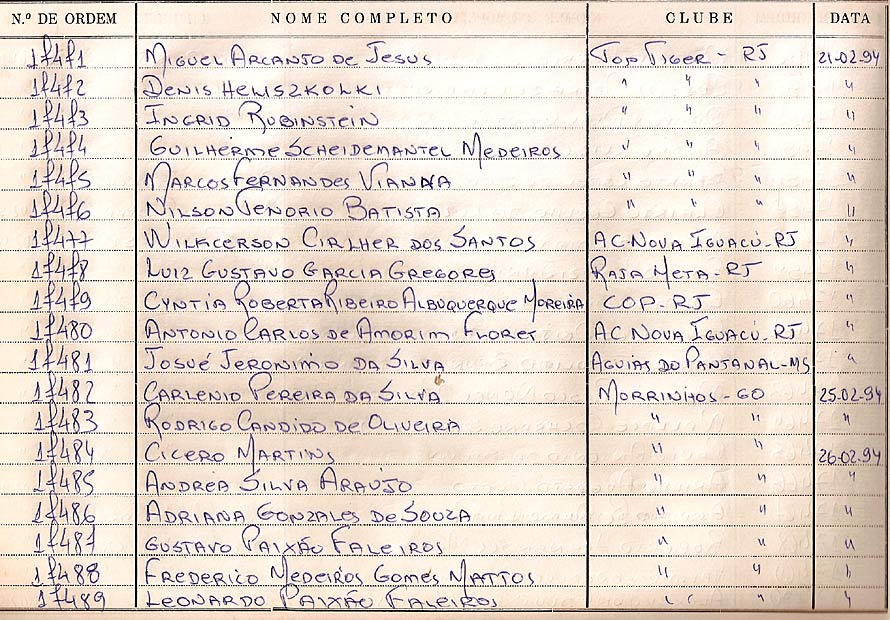 N.º DE ORDEM NOME COMPLETO CLUBE DATA
17471 MIGUEL ARCANJO DE JESUS TOP TIGER - RJ 21-02.94
17472 DENIS HELISZKOLKI " " " "
17473 INGRID RUBINSTEIN " " " "
17474 GUILHERME SCHEIDEMANTEL MEDEIROS " " " "
17475 MARCOS FERNANDES VIANNA " " " "
17476 NILSON TENORIO BATISTA " " " "
17477 WILKCERSON CIRLHER DOS SANTOS AC.NOVA IGUACÚ-RJ "
17478 LUIZ GUSTAVO GARCIA GREGORES RASA META-RJ "
17479 CYNTIA ROBERTA RIBEIRO ALBUQUERQUE MOREIRA COP-RJ "
17480 ANTONIO CARLOS DE AMORIM FLORET AC NOVA IGUACÚ-RJ "
17481 JOSUÉ JERONIMO DA SILVA AGUIAS DO PANTANAL-MS "
17482 CARLENIO PEREIRA DA SILVA MORRINHOS - GO 25-02.94
17483 RODRIGO CANDIDO DE OLIVEIRA " " "
17484 CICERO MARTINS " " 26-02.94
17485 ANDREA SILVA ARAÚJO " " "
17486 ADRIANA GONZALES DE SOUZA " " "
17487 GUSTAVO PAIXÃO FALEIROS " " "
17488 FREDERICO MEDEIROS GOMES MATTOS " " "
17489 LEONARDO PAIXÃO FALEIROS " " "